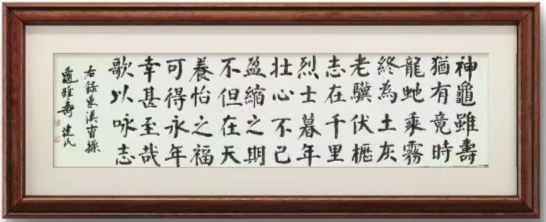 神龜雖壽
猶有竟時
龍虵乘霧
終為土灰
老驥伏櫪
志在千里
烈士暮年
壯心不已
盈縮之期
不但在天
養怡之福
可得永年
幸甚至哉
歌以咏志
右錄東漢曹操
龜雖壽 建民